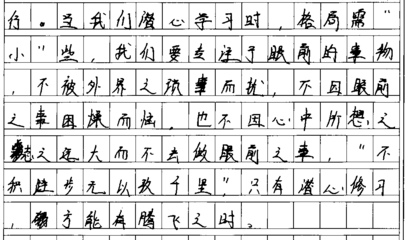 行。至我们潜心学习时,格局需"
小"些,我们要专注于眼前的事物
,不被外界之琐事而扰,不因眼前
之事困燥而恼,也不因心中所想之
志之远大而不去做眼前之事,"不
积跬步无以致千里",只有潜心修习
,方能有腾飞之时。